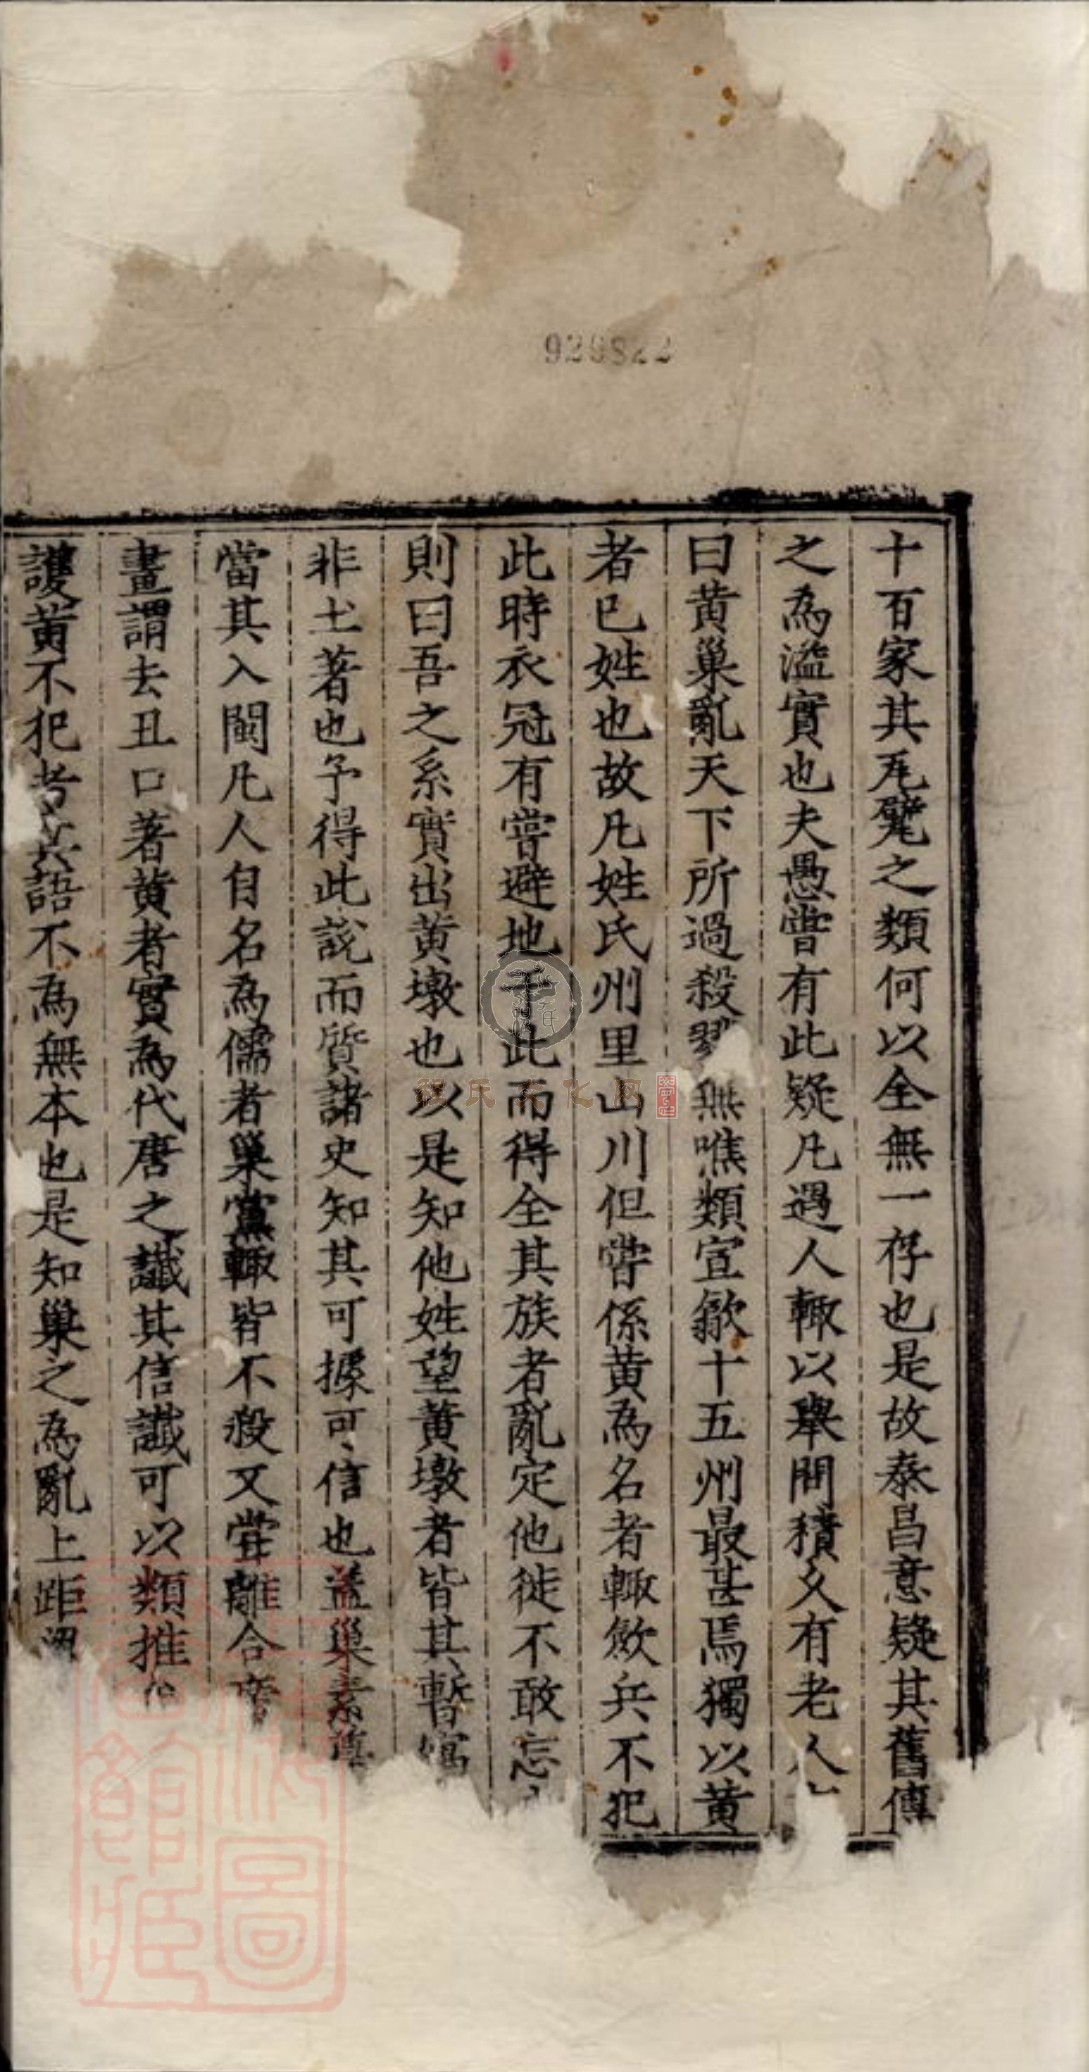 十百家其瓦甓之類何以全無一存也是故泰昌意疑其舊傳
之為滥實也夫愚嘗有此疑凡遇人輙以舉問積久有老人
曰黄巢亂天下所過殺無噍類宣歙十五州最甚焉獨以黄
者已姓也故凡姓氏州里山川但嘗係黄為名者輙斂兵不犯
此時衣冠有嘗避地于此而得全其族者亂定他徙不敢忘
則曰吾之系實出黄墩也以是知他姓望黄墩者皆其暫寓
非土著也予得此說而質諸史知其可據可信也盖巢素
當其入閩凡人自名為儒者巢黨輙皆不殺又嘗離合唐
畫謂去丑口著黄者實為代唐之讖其信讖可以類推
護黄不犯者其語不為無本也是知巢之為亂上距
929822